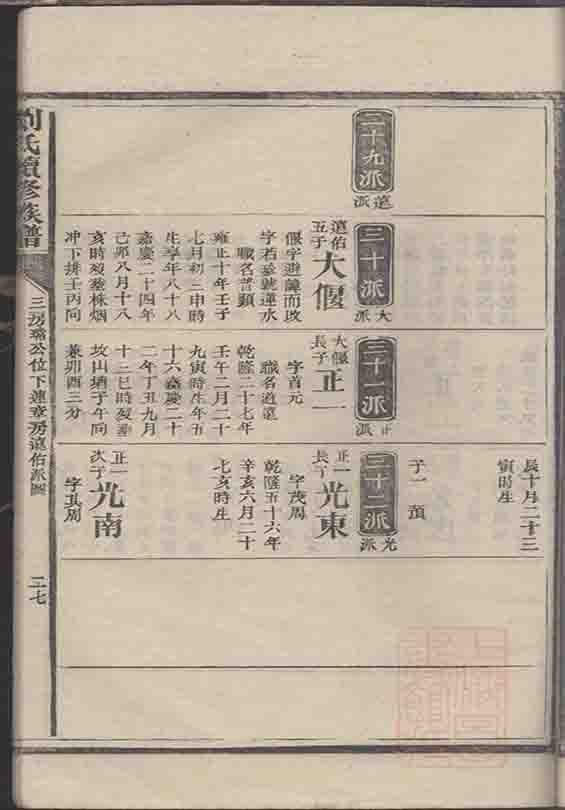 辰十月二十三
寅時生
子一 蕷
二十九派
遠派
三十派
大派
遠佑五子
大偃
偃字避諱而改
字若臺號蓮水
職名普顯
雍正十年壬子
七月初三申時
生享年八十八
嘉慶二十四年
己卯八月十八
亥時歿塟株烟
冲下排壬丙向
三十一派
正派
大偃長子
正一
字首元
職名道遠
乾隆二十七年
壬午二月二十
九寅時生年五
十六嘉慶二十
二年丁丑九月
十二巳時歿塟
坟山塘子午向
兼卯酉三分
三十二派
光派
正一長子
光東
字茂周
乾隆五十六年
辛亥六月二十
七亥時生
正一次子
光南
字其周
劉氏續修族譜
三房璐公位下蓮章房遠佑派圖
二七